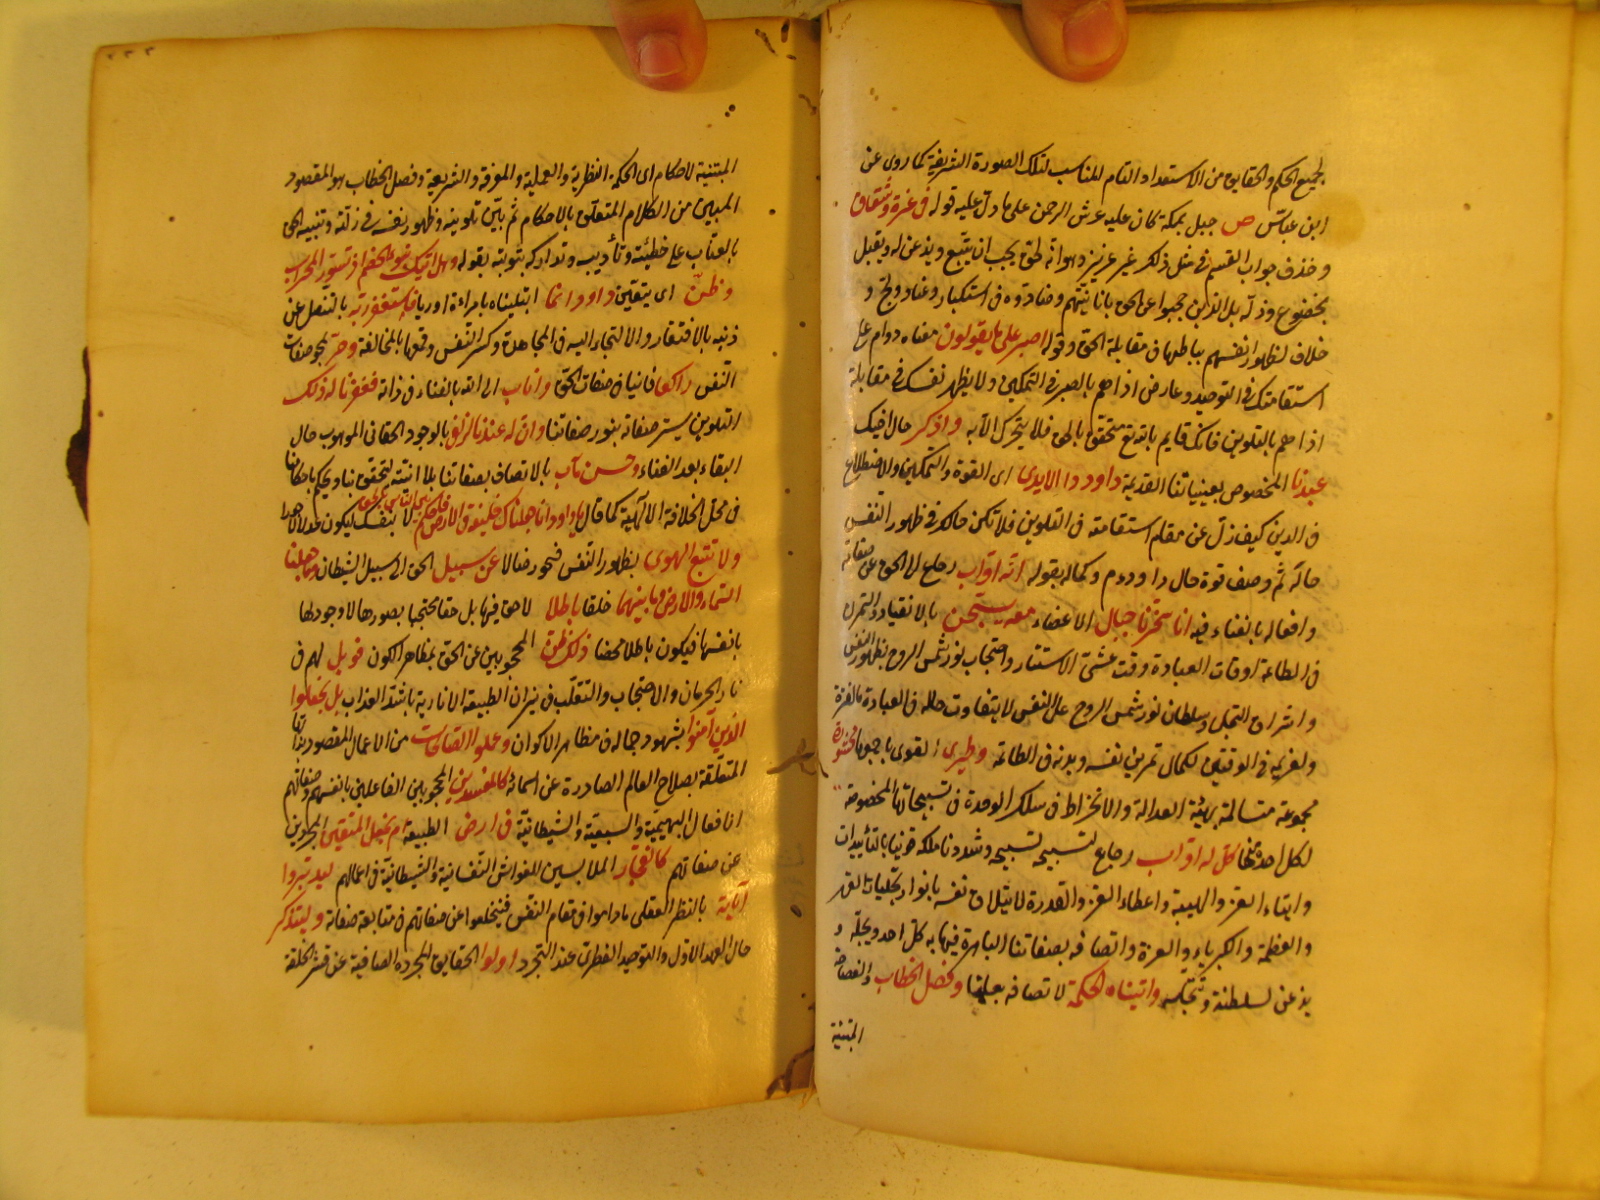 لجميع الحكم والحقايق من الاستعداد التام المناسب لتلك الصورة الشريفة كما روى عن
ابن عباس ص جبل بمكة كان عليه عرش الرحمن على ما دل عليه قوله في عزة وشقاق
وحذف جواب القسم في مثل ذلك غير عزيز وهو انه لحق يجب ان يتبع ويذعن له ويقبل
بخضوع وذلة بل الذين حجبوا عن الحق بانانيتهم وضادوه في استكبار وعناد ولج و
خلاف لظهور انفسهم بباطلها في مقابلة الحق وقوله اصبر على ما يقولون معناه دوام على
استقامتك في التوحيد وعارض اذاهم بالصبر في التمكين ولا يظهر نفسك في مقابلة
اذاهم بالتلوين فانك قايم بالله تع متحقق بالحق فلا يتحرك الا به واذكر حال اخيك
عبدنا المخصوص بعنيياتنا القديمة داود ذا الايدى اى القوة والتمكين والاضطلاع
في الدين كيف زل عن مقام استقامته في التلوين فلا تكن حالك في ظهور النفس
حاله ثم وصف قوة حال داود عم وكماله بقوله انه اواب رجاع الى الحق عن صفاته
وافعاله بالفناء فيه انا سخرنا جبال الاعضاء معه يسبحن بالانقياد والتمرن
في الطاعة اوقات العبادة وقت عشى الاستتار واحتجاب نور شمس الروح بظهور النفس
واشراق التجلى وسلطان نور شمس الروح على النفس لا يتفاوت حاله في العبادة بالفترة
والعزيمة في الوقتين لكمال تمرين نفسه وبدنه في الطاعة وطيرى القوى باجمعها محشورة
مجموعة متسالمة بهيئة العدالة والانخراط في سلك الوحدة في تسبيحاتها المخصوصة
لكل احد منها كل له اواب رجاع لتسبيحه تسبيحه وشددنا ملكه قويناه بالتأييدات
وايتاء العز والهيبة واعطاء العز والقدرة لايتلاق نفسه بانوار تجليات القهر
والعظمة والكبرياء والعزة واتصافه بصفاتنا الباهرة فيهابه كل احد ويجله و
يذعن لسلطنة وتبجيله واتيناه الحكمة لاتصافه بعلمنا وفصل الخطاب والفصاحة
المبتنية
المبتنية لاحكام اى الحكمة النظرية والعملية والمعرفة والشريعة وفصل الخطاب هو المقصود
المبين من الكلام المتعلق بالاحكام ثم بين تلوينه وظهور نفسه في زلته وتنبيه الحق
بالعتاب على خطيئته وتأديبه وتداركه بتوبته بقوله وهل اتيك نبؤ الخصم اذ تسوروا المحراب
وظن اى يتقين داود انما ابتليناه بامراءة اوريا فاستغفر ربه بالتنصل عن
ذنبه بالافتقار والالتجاء اليه في المجاهدة وكسر النفس وقمعها بالمخالفة وخر بمحو صفات
النفس راكعا فانيا في صفات الحق واناب الى الله بالفناء في ذاته فغفرنا له ذلك
التلوين بستر صفاته بنور صفاتنا وان له عندنا لزلفى بالوجود الحقانى الموهوب حال
البقاء بعد الفناء وحسن مآب بالاتصاف بصفاتنا بلا اننية لتحقق بنا ويحكم باحكامنا
في محل الخلافة الالهية كما قال يا داود انا جعلناك خليفة في الارض فاحكم بين الناس بالحق لا بنفسك ليكون عدلا لا جورا
ولا تتبع الهوى بظهور النفس فتجور ضالا عن سبيل الحق الى سبيل الشيطان وما خلقنا
السماء والارض وما بينهما خلقا باطلا لا حق فيها بل حقا محتجبا بصورها لا وجود لها
بانفسها فيكون باطلا محضا ذلك ظن المحجوبين عن الحق بمظاهر الكون فويل لهم في
نار الحرمان والاحتجاب والتقلب في نيران الطبيعة الانانية باشد العذاب بل نجعلوا
الذين آمنوا بشهود جماله في مظاهر الاكوان وعملوا الصالحات من الاعمال المقصود بذاتها
المتعلقة بصلاح العالم الصادرة عن اسمائه كالمفسدين المحجوبين الفاعلين بانفسهم وصفاتهم
افعال البهيمية والسبعية والشيطانية في ارض الطبيعة ام نجعل المتقين المجردين
عن صفاتهم كالفجار الملابسين للغواشى النفسانية والشيطانية في اعمالهم ليدبروا
آياته بالنظر العقلى ما داموا في مقام النفس فينخلعوا عن صفاتهم في متابعة صفاته وليتذكر
حال العهد الاول والتوحيد الفطرى عند التجرد اولوا الحقايق المجردة الصافية عن قشر الخلقة